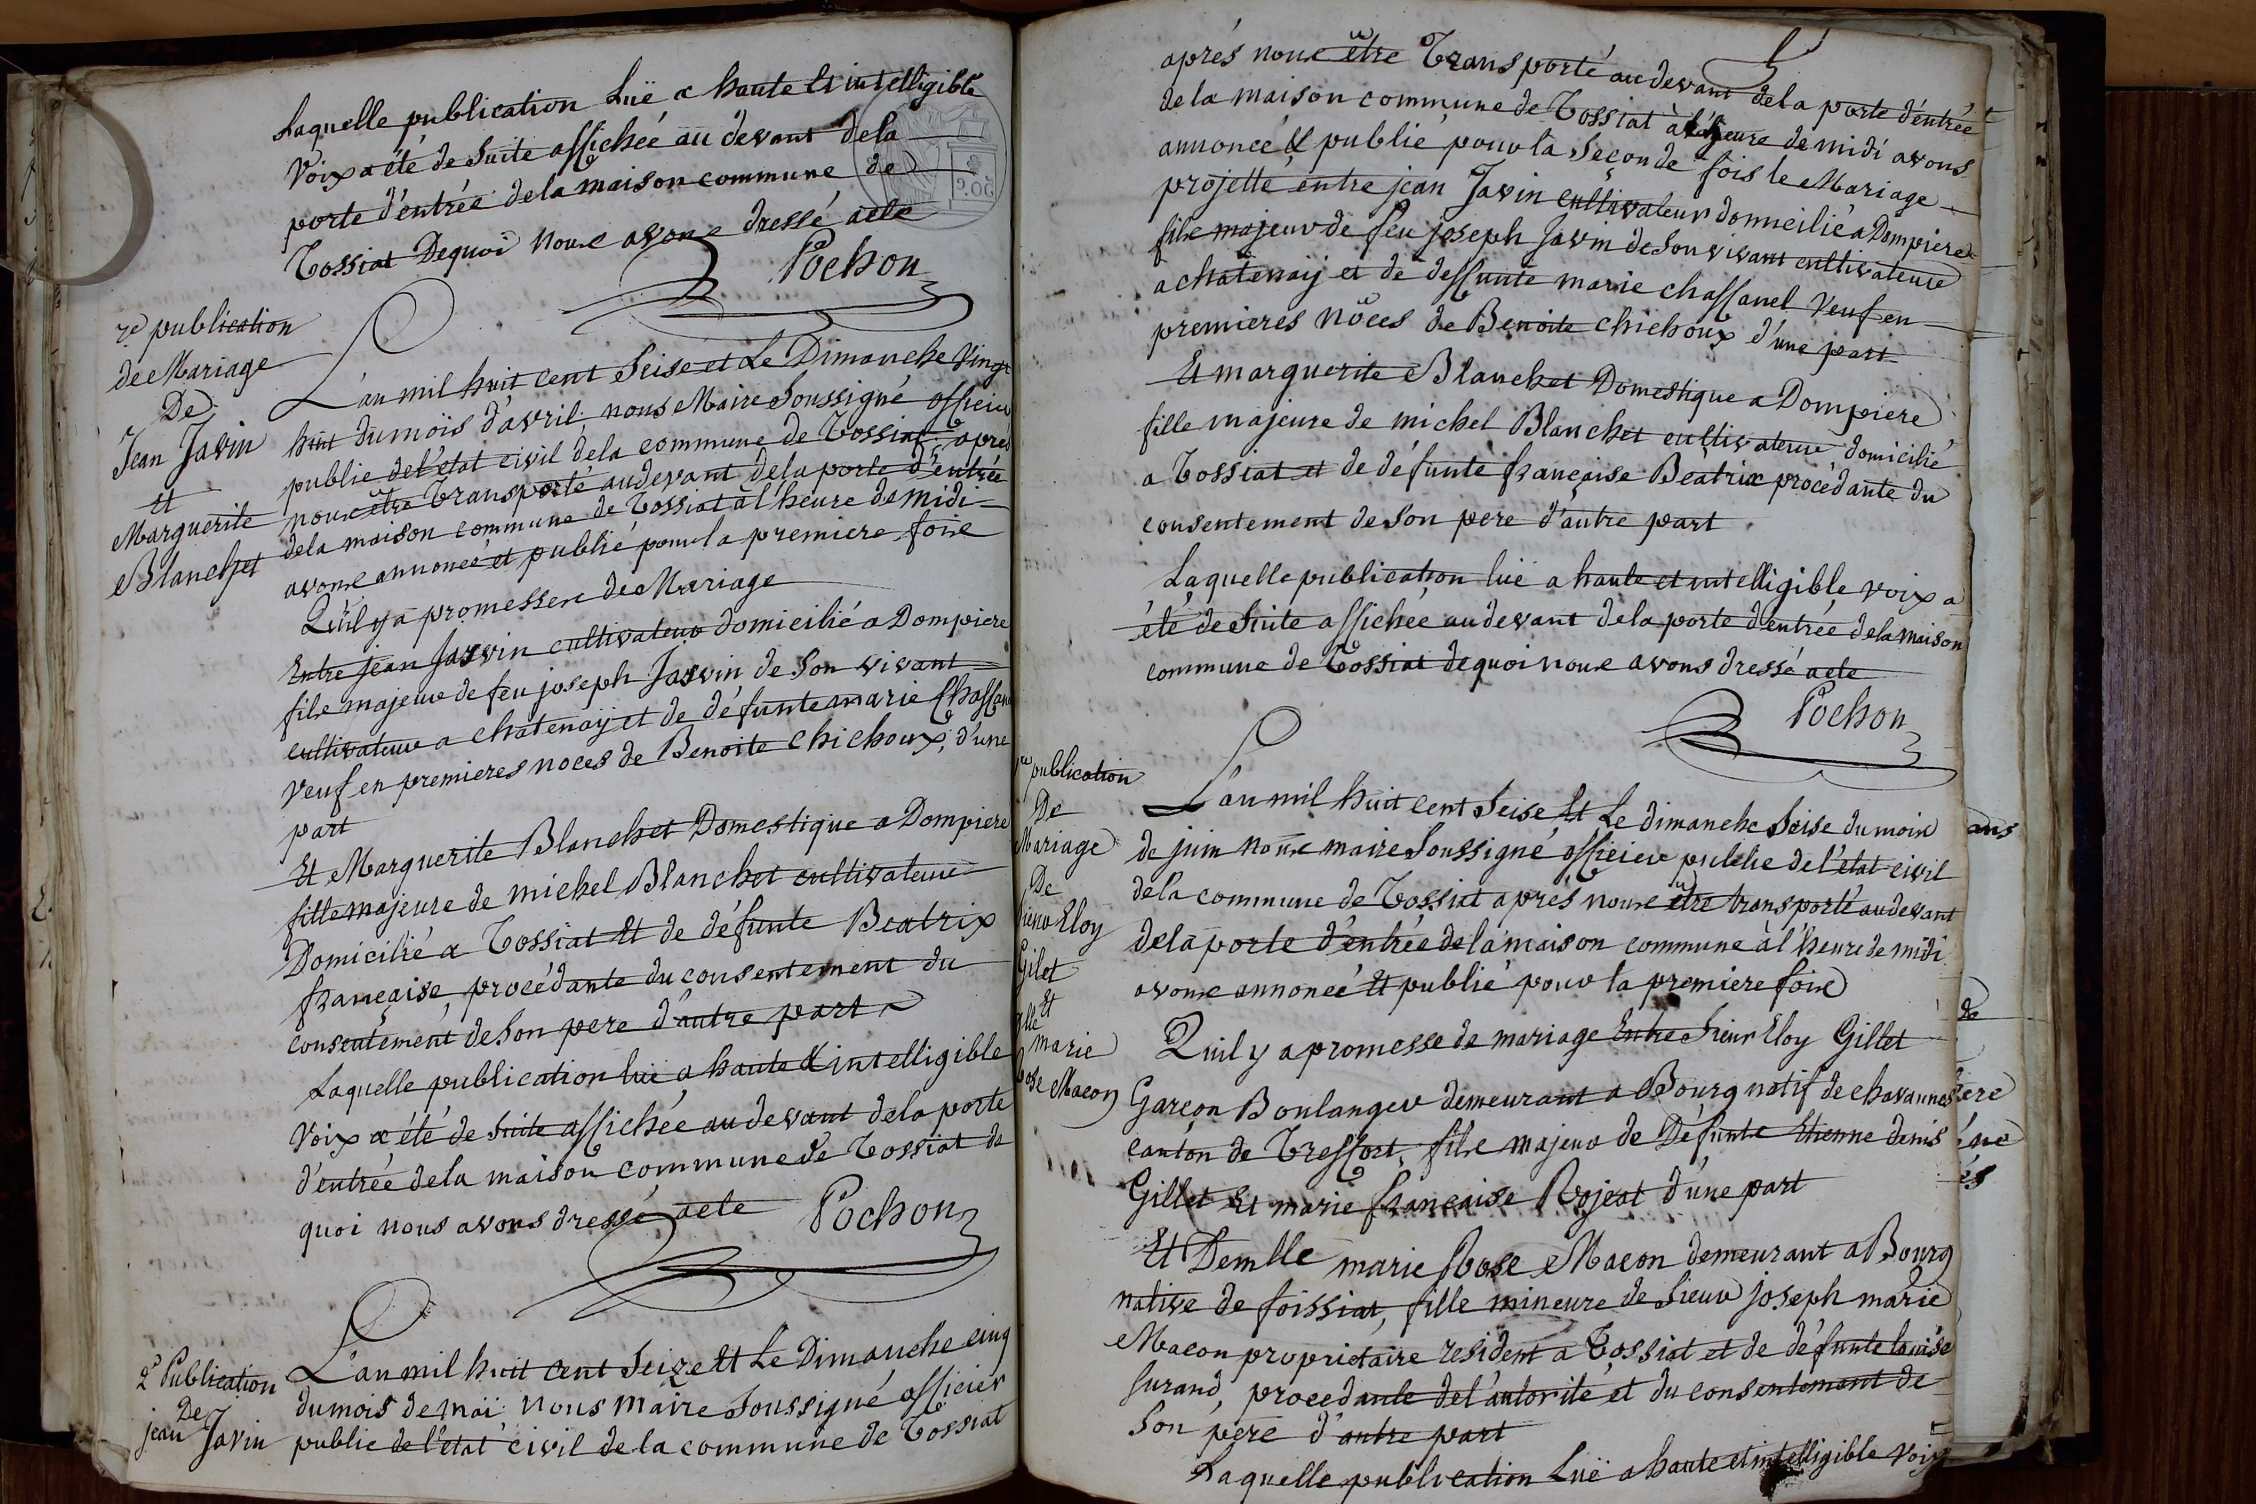 Laquelle publication Luë a haute et intelligible
Voix a été de Suite affichée au devant de la
porte d'entrée de la maison commune de
Tossiat De quoi nous avons dressé acte
Pochon
publication
de Mariage
De
Jean Javin
Et
Marguerite
Blanchet
L'an mil huit cent Seise et Le Dimanche Vingt
huit du mois d'avril nous Maire Soussigné officier
public de l'etat civil de la commune de Tossiat, apres
nous être Transporté au devant de la porte d'entrée
de la maison commune de Tossiat à l'heure de midi
avons annoncé et publié pour la premiere fois
Qu'il y a promesse de Mariage
Entre jean Javin cultivateur domicilié a Dompiere
fils majeur de feu joseph Javin de Son vivant
cultivateur a chatenaÿ et de défunte marie Chassan
Veuf en premieres noces de Benoite Chichoux, d'une
part
Et Marguerite Blanchet Domestique a Dompiere
fille majeure de michel Blanchet cultivateur
Domicilié a Tossiat Et de défunte Beatrix
française, procédante du consentement du
consentement de Son pere d'autre part
Laquelle publication luë a haute & intelligible
Voix a été de Suite affichée au devant de la porte
d'entrée de la maison commune de Tossiat de
quoi nous avons dressé acte
Pochon
2e Publication
De
jean Javin
L'an mil huit cent Seize Et Le Dimanche cinq
du mois de maï nous maire Soussigné officier
public de l'etat civil de la commune de Tossiat
aprés nous être Transporté au devant de la porte d'entrée
de la maison commune de Tossiat à l'heure de midi avons
annoncé & publié pour la Seconde fois le Mariage
projetté entre jean Javin cultivateur domicilié a Dompiere
fils majeur de feu joseph Javin de Son vivant cultivateur
a chatenaÿ et de deffunte marie chassanel Veuf en
premieres nöces de Benoite chichoux d'une part
Et marguerite Blanchet Domestique a Dompiere
fille majeure de michel Blanchet cultivateur domicilié
a Tossiat et de défunte française Beatrix procédante du
consentement de Son pere d'autre part
Laquelle publication luë a haute et intelligible voix a
été de Suite affichée au devant de la porte d'entrée de la maison
commune de Tossiat de quoi nous avons dressé acte
Pochon
publication
De
Mariage
De
Sieur Eloy
Gilet
Et
marie
Rose Macon
L'an mil huit cent Seise, Et Le dimanche Seise du mois
de juin nous maire Soussigné officier public de l'etat civil
de la commune de Tossiat aprés nous être transporté au devant
de la porte d'entrée de la maison commune à l'heure de midi
avons annoncé Et publié pour la premiere fois
Quil y a promesse de mariage Entre Sieur Eloy Gillet
Garçon Boulanger demeurant a Bourg natif de chavannes
canton de Treffort, fils majeur de Défunte Etienne denis
Gillet Et marie française Rojeat d'une part
Et Demlle marie Rose Macon demeurant a Bourg
native de foissiat, fille mineure de Sieur joseph marie
Macon proprietaire resident a Tossiat et de défunte louise
Surand, procedante de l'autorité et du consentement de
Son pere d'autre part
Laquelle publication Luë a haute et intelligible Voix